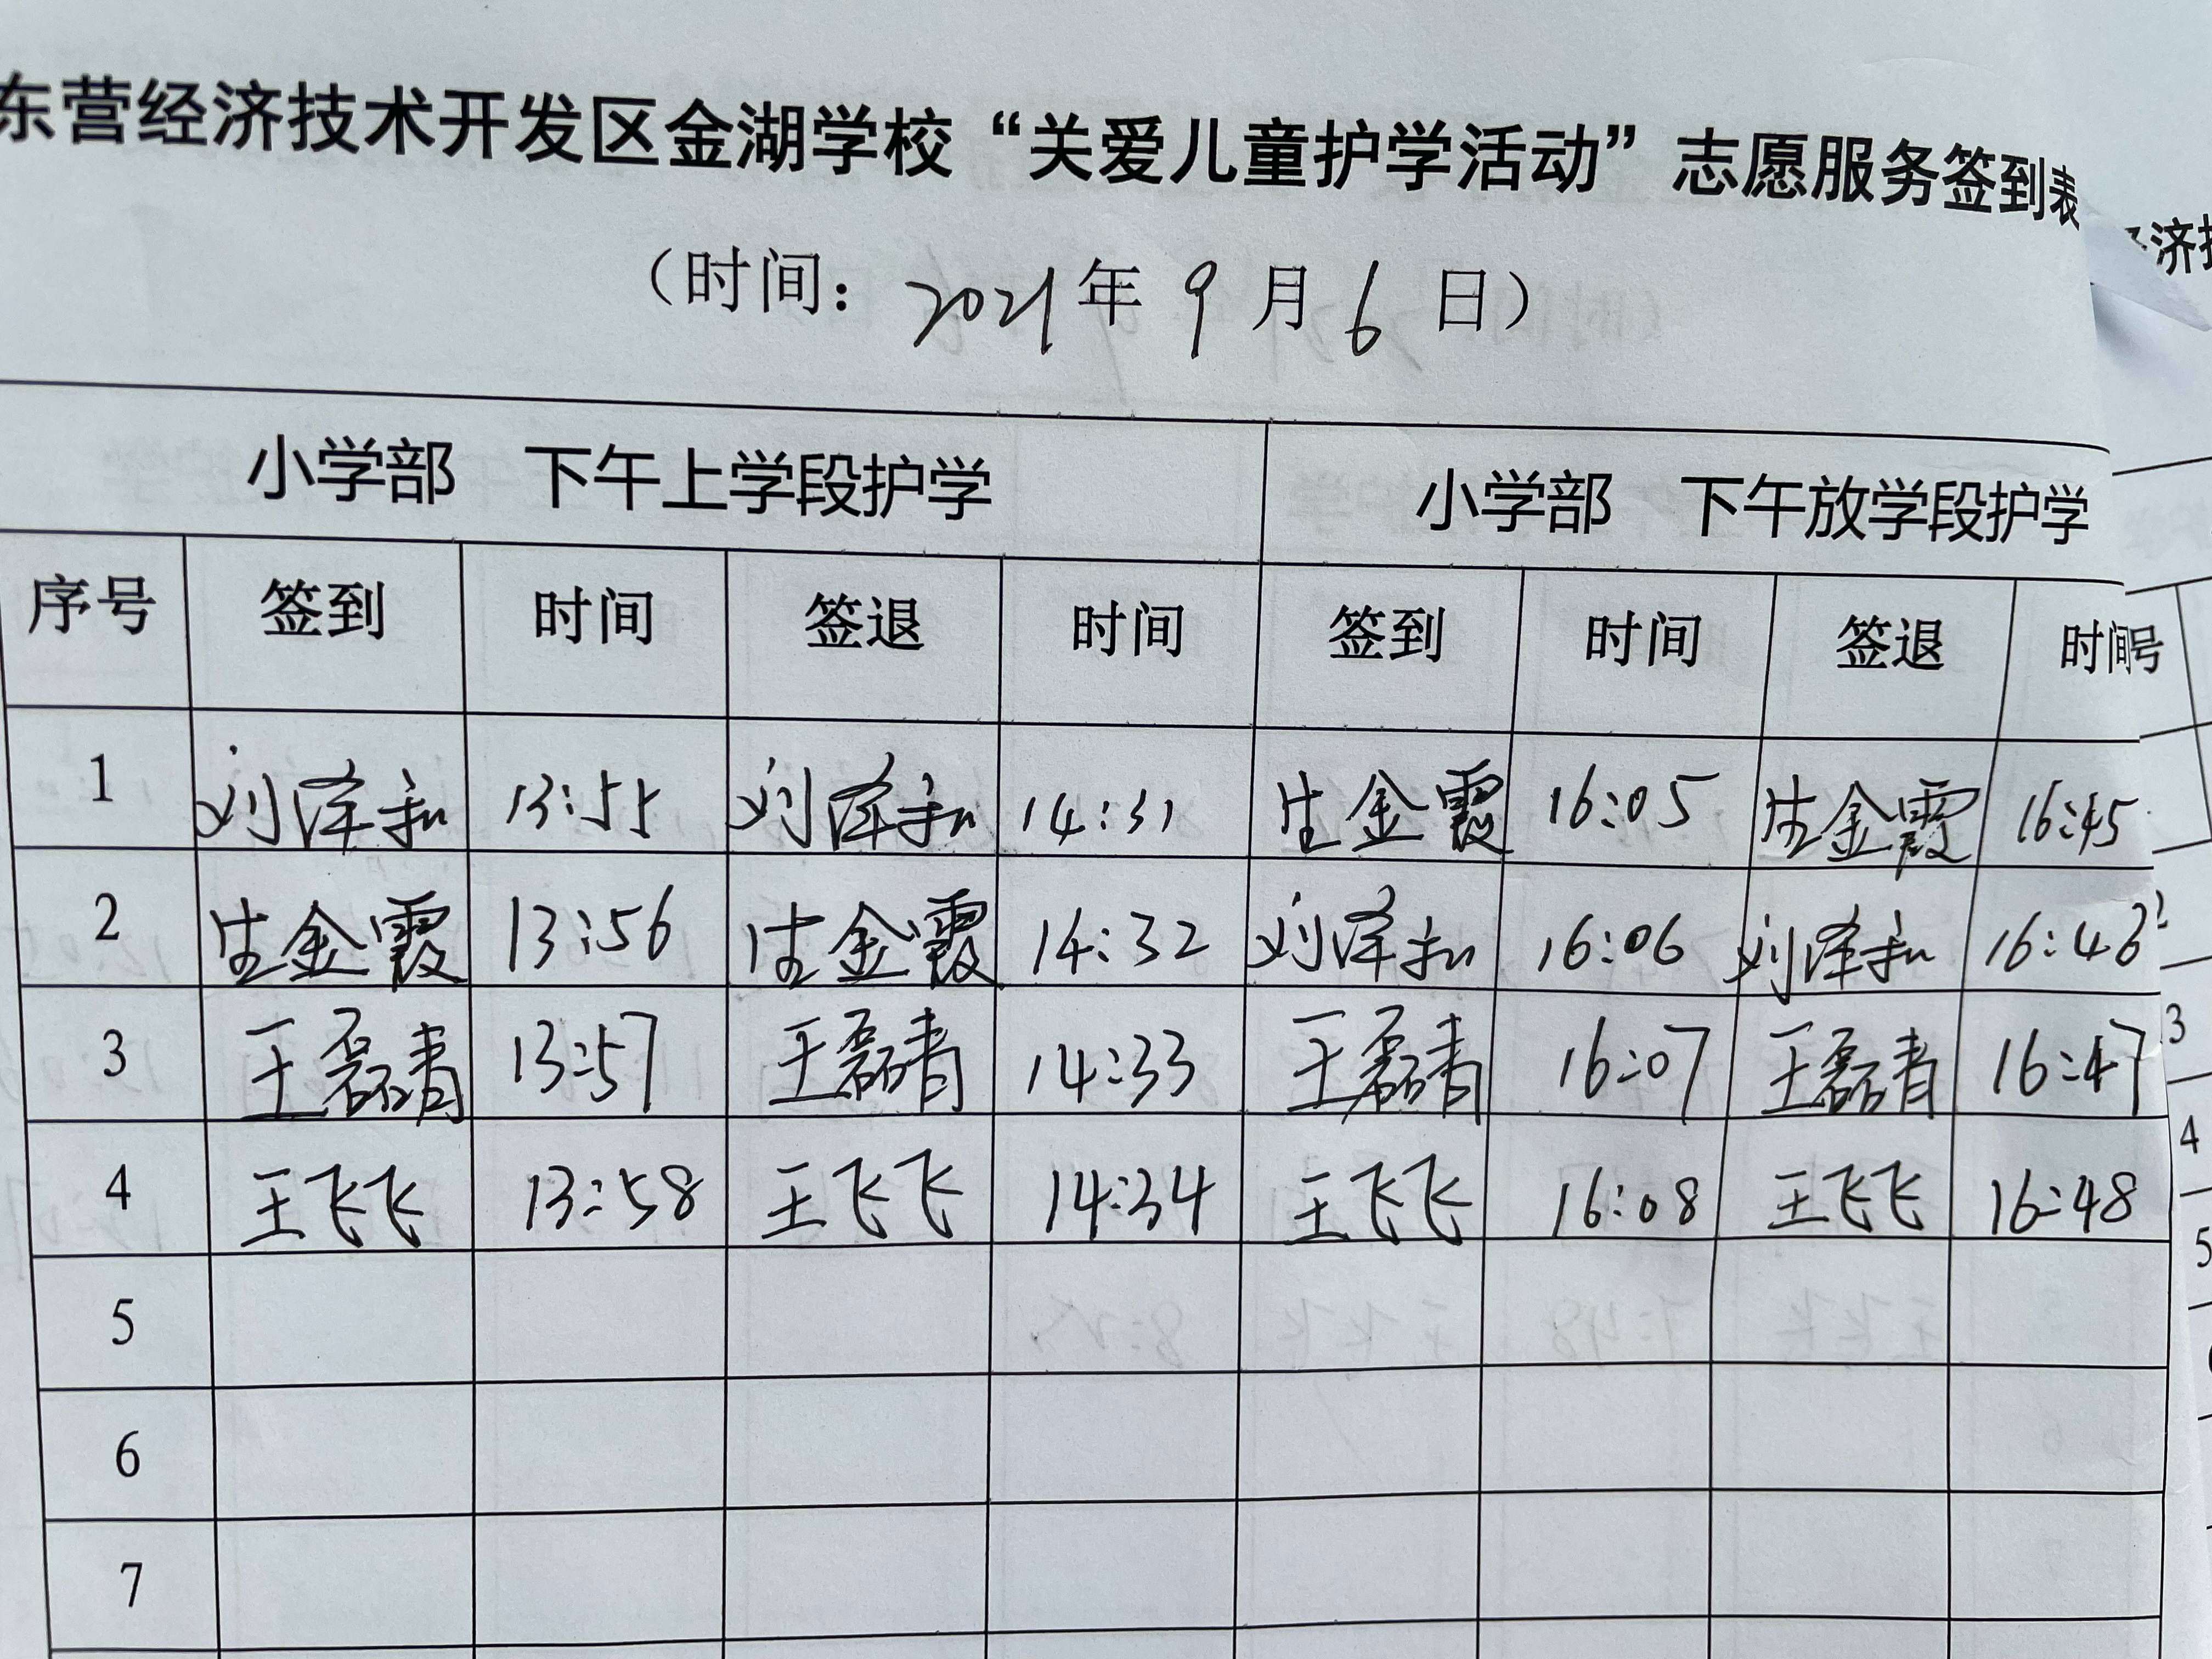 东营经济技术开发区金湖学校“关爱儿童护学活动”志愿服务签到表
（时间：2021年9月6日）
小学部 下午上学段护学 小学部 下午放学段护学
序号 签到 时间 签退 时间 签到 时间 签退 时间
1 刘泽和 13:55 刘泽和 14:31 生金霞 16:05 生金霞 16:45
2 生金霞 13:56 生金霞 14:32 刘泽和 16:06 刘泽和 16:46
3 王磊青 13:57 王磊青 14:33 王磊青 16:07 王磊青 16:47
4 王飞飞 13:58 王飞飞 14:34 王飞飞 16:08 王飞飞 16:48
5
6
7
经济
号
3
4
5